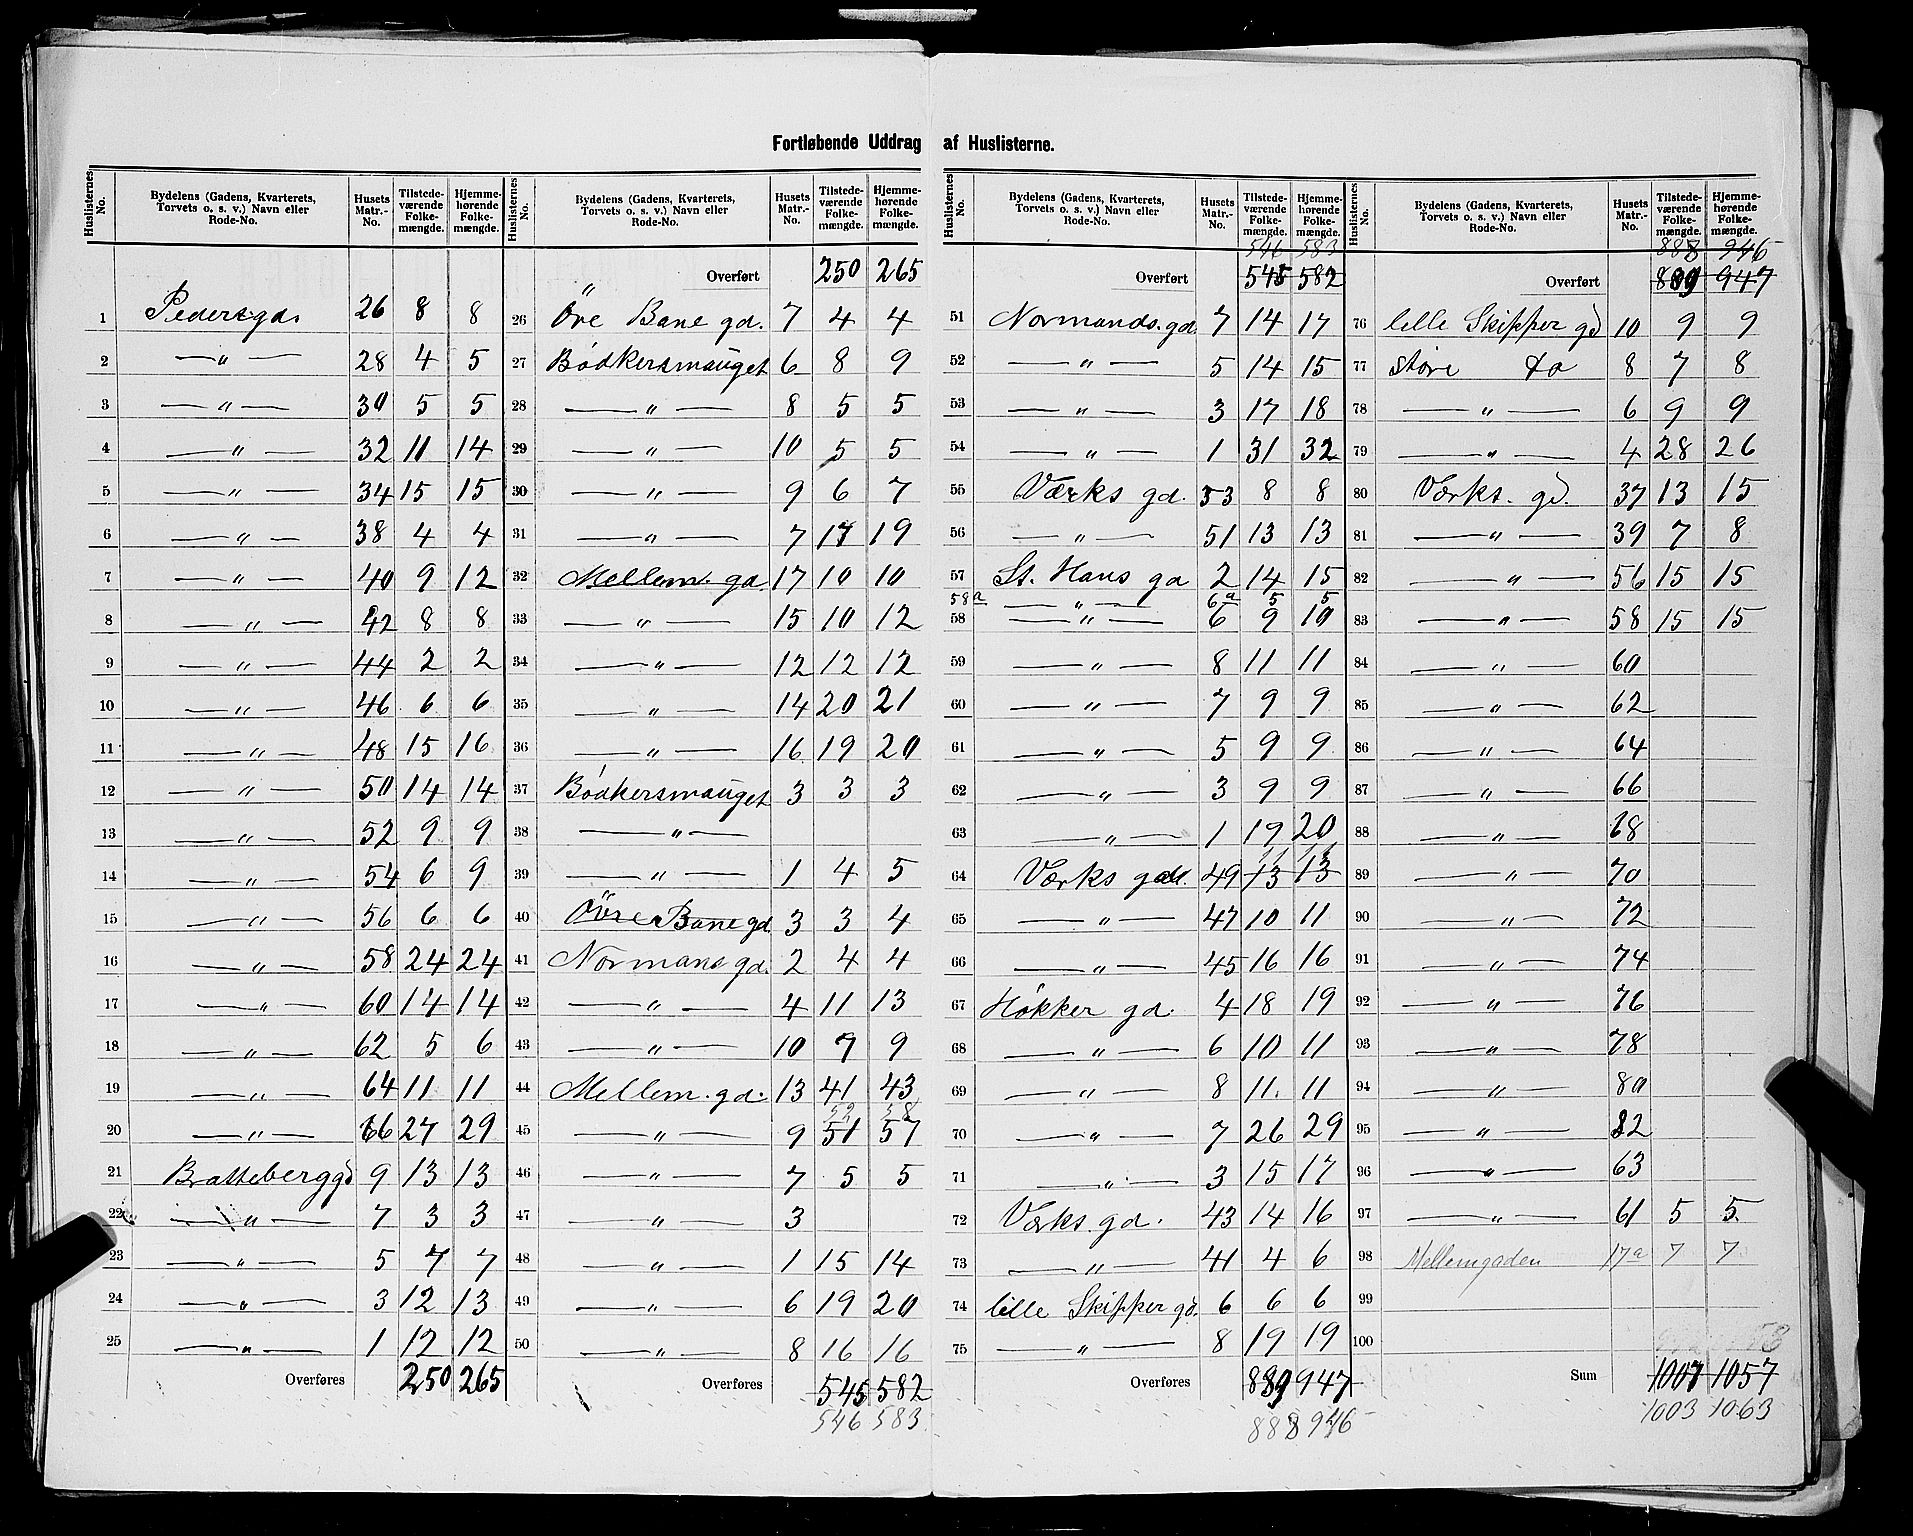 Fortløbende Uddrag af Huslisterne.
Huslisternes No. | Bydelens (Gadens, Kvarterets, Torvets o. s. v.) Navn eller Rode-No. | Husets Matr.-No. | Tilstedeværende Folkemængde. | Hjemmehørende Folkemængde.
1 Pedersgd. 26 8 8
2 —〃— 28 4 5
3 —〃— 30 5 5
4 —〃— 32 11 14
5 —〃— 34 15 15
6 —〃— 38 4 4
7 —〃— 40 9 12
8 —〃— 42 8 8
9 —〃— 44 2 2
10 —〃— 46 6 6
11 —〃— 48 15 16
12 —〃— 50 14 14
13 —〃— 52 9 9
14 —〃— 54 6 9
15 —〃— 56 6 6
16 —〃— 58 24 24
17 —〃— 60 14 14
18 —〃— 62 5 6
19 —〃— 64 11 11
20 —〃— 66 27 29
21 Bratteberggd 9 13 13
22 —〃— 7 3 3
23 —〃— 5 7 7
24 —〃— 3 12 13
25 —〃— 1 12 12
Overføres 250 265
Huslisternes No. | Bydelens (Gadens, Kvarterets, Torvets o. s. v.) Navn eller Rode-No. | Husets Matr.-No. | Tilstedeværende Folkemængde. | Hjemmehørende Folkemængde.
Overført 250 265
26 Övre Bane gd. 7 4 4
27 Bödkersmauget 6 8 9
28 —〃— 8 5 5
29 —〃— 10 5 5
30 —〃— 9 6 7
31 —〃— 7 17 19
32 Mellem. gd. 17 10 10
33 —〃— 15 10 12
34 —〃— 12 12 12
35 —〃— 14 20 21
36 —〃— 16 19 20
37 Bödkersmauget 3 3 3
38 —〃—
39 —〃— 1 4 5
40 Övre Bane gd. 3 3 4
41 Normans gd. 2 4 4
42 —〃— 4 11 13
43 —〃— 10 7 9
44 Mellem. gd. 13 41 43
52 58
45 —〃— 9 51 57
46 —〃— 7 5 5
47 —〃— 3
48 —〃— 1 15 14
49 —〃— 6 19 20
50 —〃— 8 16 16
Overføres 545 582
546 583
Huslisternes No. | Bydelens (Gadens, Kvarterets, Torvets o. s. v.) Navn eller Rode-No. | Husets Matr.-No. | Tilstedeværende Folkemængde. | Hjemmehørende Folkemængde.
546 583
Overført 545 582
51 Normands. gd. 7 14 17
52 —〃— 5 14 15
53 —〃— 3 17 18
54 —〃— 1 31 32
55 Værks gd. 53 8 8
56 —〃— 51 13 13
57 St. Hans gd 2 14 15
58a —〃— 6a 5 5
58 —〃— 6 9 10
59 —〃— 8 11 11
60 —〃— 7 9 9
61 —〃— 5 9 9
62 —〃— 3 9 9
63 —〃— 1 19 20
64 Værks gd. 49 13 13
65 —〃— 47 10 11
66 —〃— 45 16 16
67 Høkker gd. 4 18 19
68 —〃— 6 10 11
69 —〃— 8 11 11
70 —〃— 7 26 29
71 —〃— 3 15 17
72 Værks. gd. 43 14 16
73 —〃— 41 4 6
74 lille Skipper gd. 6 6 6
75 —〃— 8 19 19
Overføres 889 947
888 946
Huslisternes No. | Bydelens (Gadens, Kvarterets, Torvets o. s. v.) Navn eller Rode-No. | Husets Matr.-No. | Tilstedeværende Folkemængde. | Hjemmehørende Folkemængde.
888 946
Overført 889 947
76 lille Skipper gd 10 9 9
77 store do 8 7 8
78 —〃— 6 9 9
79 —〃— 4 28 26
80 Værks. gd. 37 13 15
81 —〃— 39 7 8
82 —〃— 56 15 15
83 —〃— 58 15 15
84 —〃— 60
85 —〃— 62
86 —〃— 64
87 —〃— 66
88 —〃— 68
89 —〃— 70
90 —〃— 72
91 —〃— 74
92 —〃— 76
93 —〃— 78
94 —〃— 80
95 —〃— 82
96 —〃— 63
97 —〃— 61 5 5
98 Mellemgaden 17a 7 7
99
100
Sum 1007 1057
1003 1063